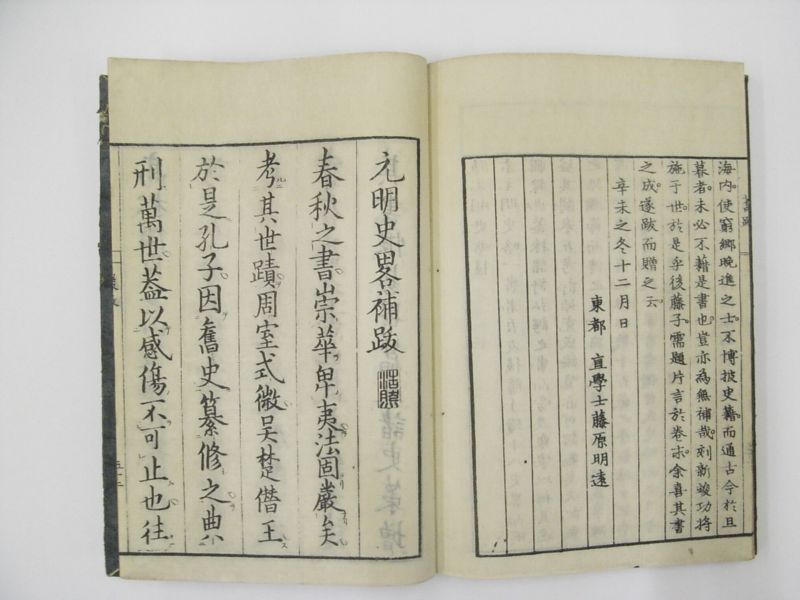 海内使窮鄉晚進之士不博披史籍而通古今於且
暮者未必不藉是書也豈亦為無補哉刻新竣功將
施于世於是乎後藤子需題片言於卷末余喜其書
之成遂跋而贈之云
辛未之冬十二月日
東都 直學士藤原明遠
元明史畧補跋
春秋之書崇華卑夷法固嚴矣
考其世蹟周室式微吳楚僭王
於是孔子因舊史纂修之典
刑萬世蓋以感傷不可止也往